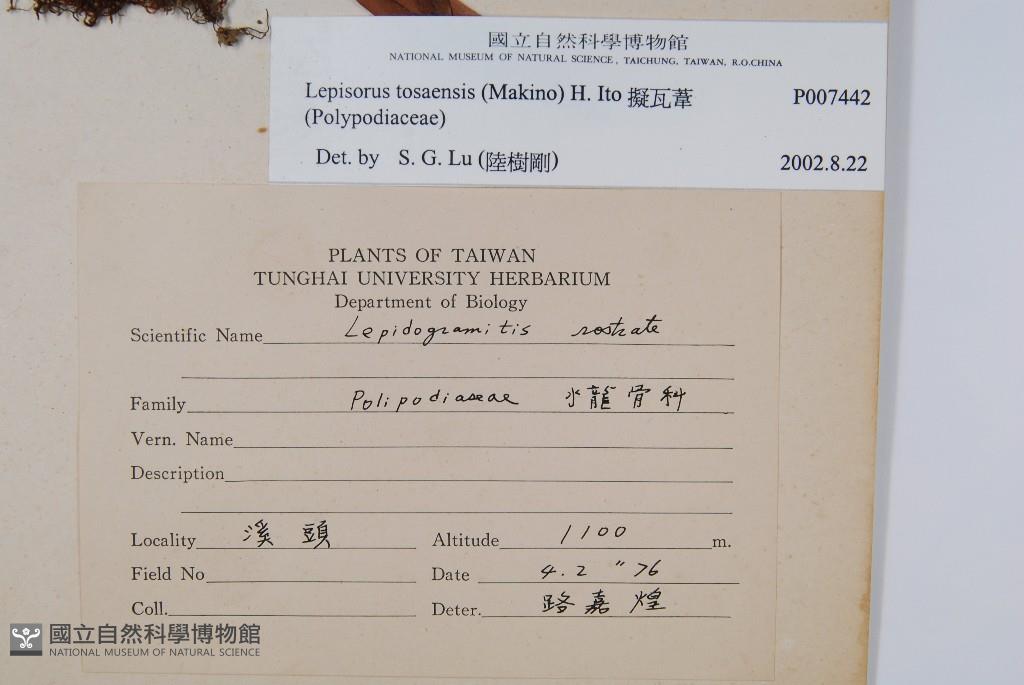 國立自然科學博物館
NATIONAL MUSEUM OF NATURAL SCIENCE, TAICHUNG, TAIWAN, R.O.CHINA
Lepisorus tosaensis (Makino) H. Ito 擬瓦葦 P007442
(Polypodiaceae)
Det. by S. G. Lu (陸樹剛) 2002.8.22
PLANTS OF TAIWAN
TUNGHAI UNIVERSITY HERBARIUM
Department of Biology
Scientific Name Lepidogramitis rostrate
Family Polipodiaseae 水龍骨科
Vern. Name
Description
Locality 溪頭 Altitude 1100 m.
Field No Date 4.2 "76
Coll. Deter. 路嘉煌
國立自然科學博物館
NATIONAL MUSEUM OF NATURAL SCIENCE